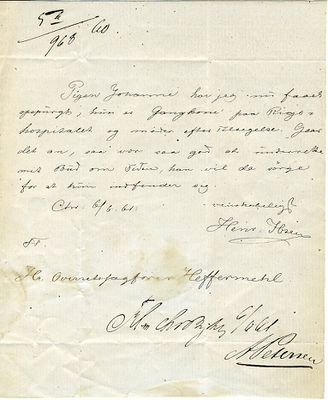 5te/968 60
Pigen Johanne har jeg nu faaet
opspurgt, hun er Gangkone paa Rigs-
hospitalet og møder efter Tilsigelse. Gaar
det an, saa vær saa god at underrette
mit Bud om Tiden, han vil da sørge
for at hun indfinder sig.
Chr. 6/6 61. venskabeligst
Henr. Ibsen
Hr. Overretssagfører Heffermehl
6/6 61
A Petersen